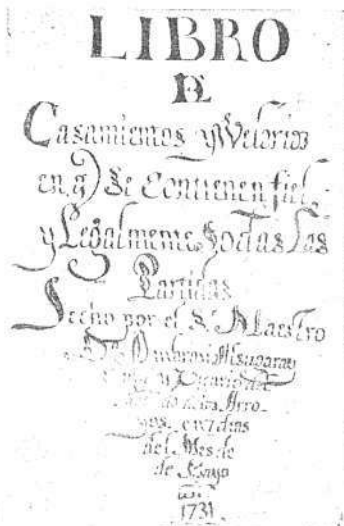 LIBRO
DE
Casamientos y Velorios
en q Se Contienen fiel
y Legalmente todas Las
Partidas
Fecho por el Sr Maestro
y Vicario de
Arro-
yos en 7 dias
del Mes de
de Mayo
1731